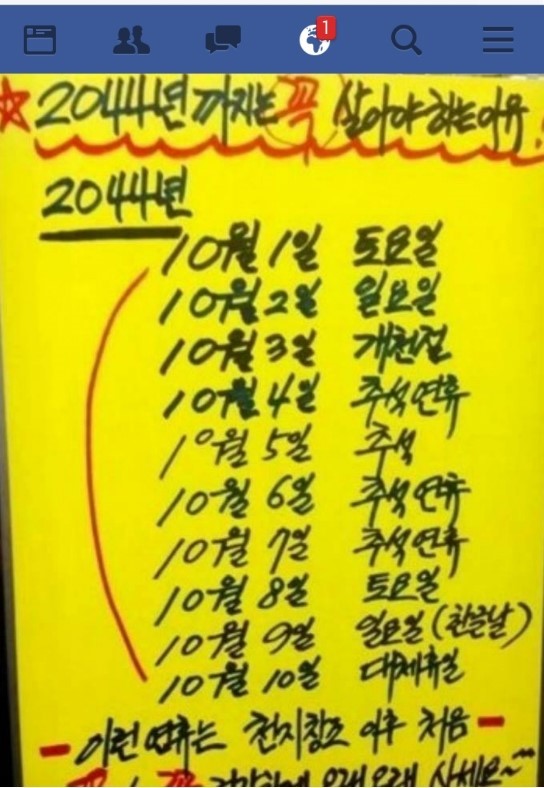 1
☆2044년 까지는 꼭 살아야 하는 이유!
2044년
10월 1일 토요일
10월 2일 일요일
10월 3일 개천절
10월 4일 추석연휴
10월 5일 추석
10월 6일 추석연휴
10월 7일 추석연휴
10월 8일 토요일
10월 9일 일요일(한글날)
10월 10일 대체휴일
- 이런 연휴는 천지창조 이후 처음 -
꼭! 꼭 건강하게 오래오래 사세요~^^